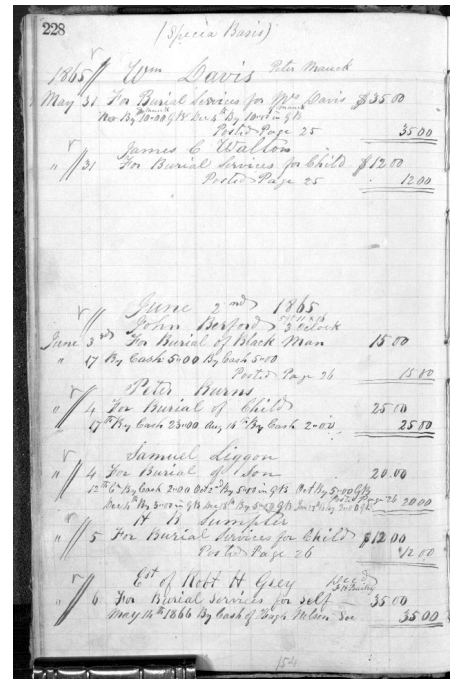 228
(Specia Basis)
1865 Wm Davis Peter Mauck
May 31 For Burial Services for Mrs Davis $35.00
Nov By 10.00 Gk Dec By 10.00 in Gk
Posted Page 25 35.00
James C Walton
" 31 For Burial Services for Child $12.00
Posted Page 25 12.00
June 2nd 1865
John Berford 3 oclock
June 3rd For Burial of Black Man 15.00
" 17 By Cash 5.00 By Cash 5.00
Posted Page 26 15.00
Peter Burns
" 4 For Burial of Child 25.00
17th By Cash 23.00 Aug 14th By Cash 2.00 25.00
Samuel Liggon
" 4 For Burial of Son 20.00
12th By Cash 2.00 Oct 2nd By 5.00 in GB Oct By 5.00 GB
Posted Page 26
Dec By 5.00 in GB By 5.00 GB 20.00
H B Sumpter
" 5 For Burial Services for Child $12.00
Posted Page 26 12.00
Est of Robt H Grey
" 6 For Burial Services for self 35.00
May 14th 1866 By Cash of Hugh Nelson 35.00
154